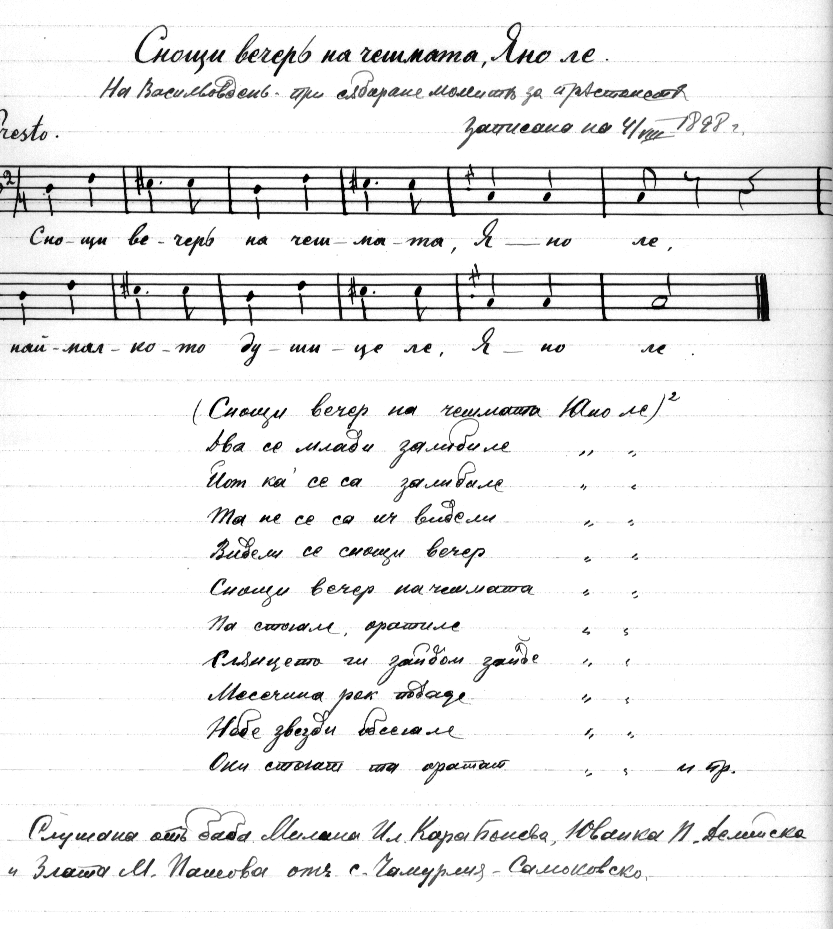 Снощи вечерь на чешмата, Яно ле.
На Васильовдень - при събиране момите за пръстените
Записана на 4/VIII 1898 г.
Presto.
Сно-щи ве-черь на чеш-ма-та, Я-но ле,
най-мал-ко-то ду-ши-це ле, Я-но ле.
(Снощи вечер на чешмата Яно ле)²
Два се млади залюбиле " "
От ка' се са залюбиле " "
Та не се са ич видели " "
Видели се снощи вечер " "
Снощи вечер на чешмата " "
Па стояле, оратиле " "
Слянцето ги зайдом зайде " "
Месечина рек
Небе звезди " "
Они стоят та оратат " " и пр.
Слушана отъ баба Милана Ил. Кара Бонева, Юванка П.
и Злата М. Пашова отъ с. Чамурлия - Самоковско.